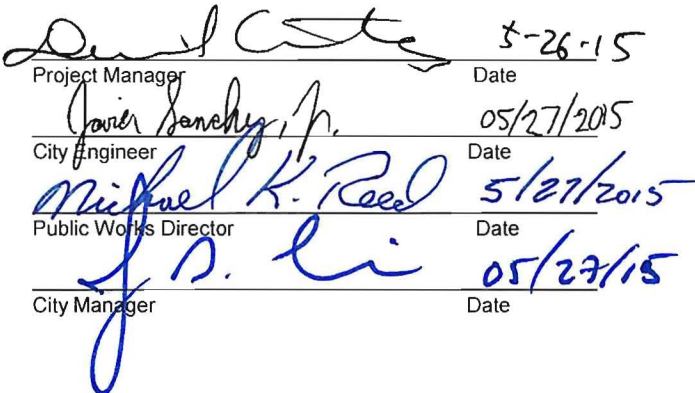 5-26-15
Project Manager Date
Javier Sanchez, Jr. 05/27/2015
City Engineer Date
Michael K. Reed 5/27/2015
Public Works Director Date
05/27/15
City Manager Date